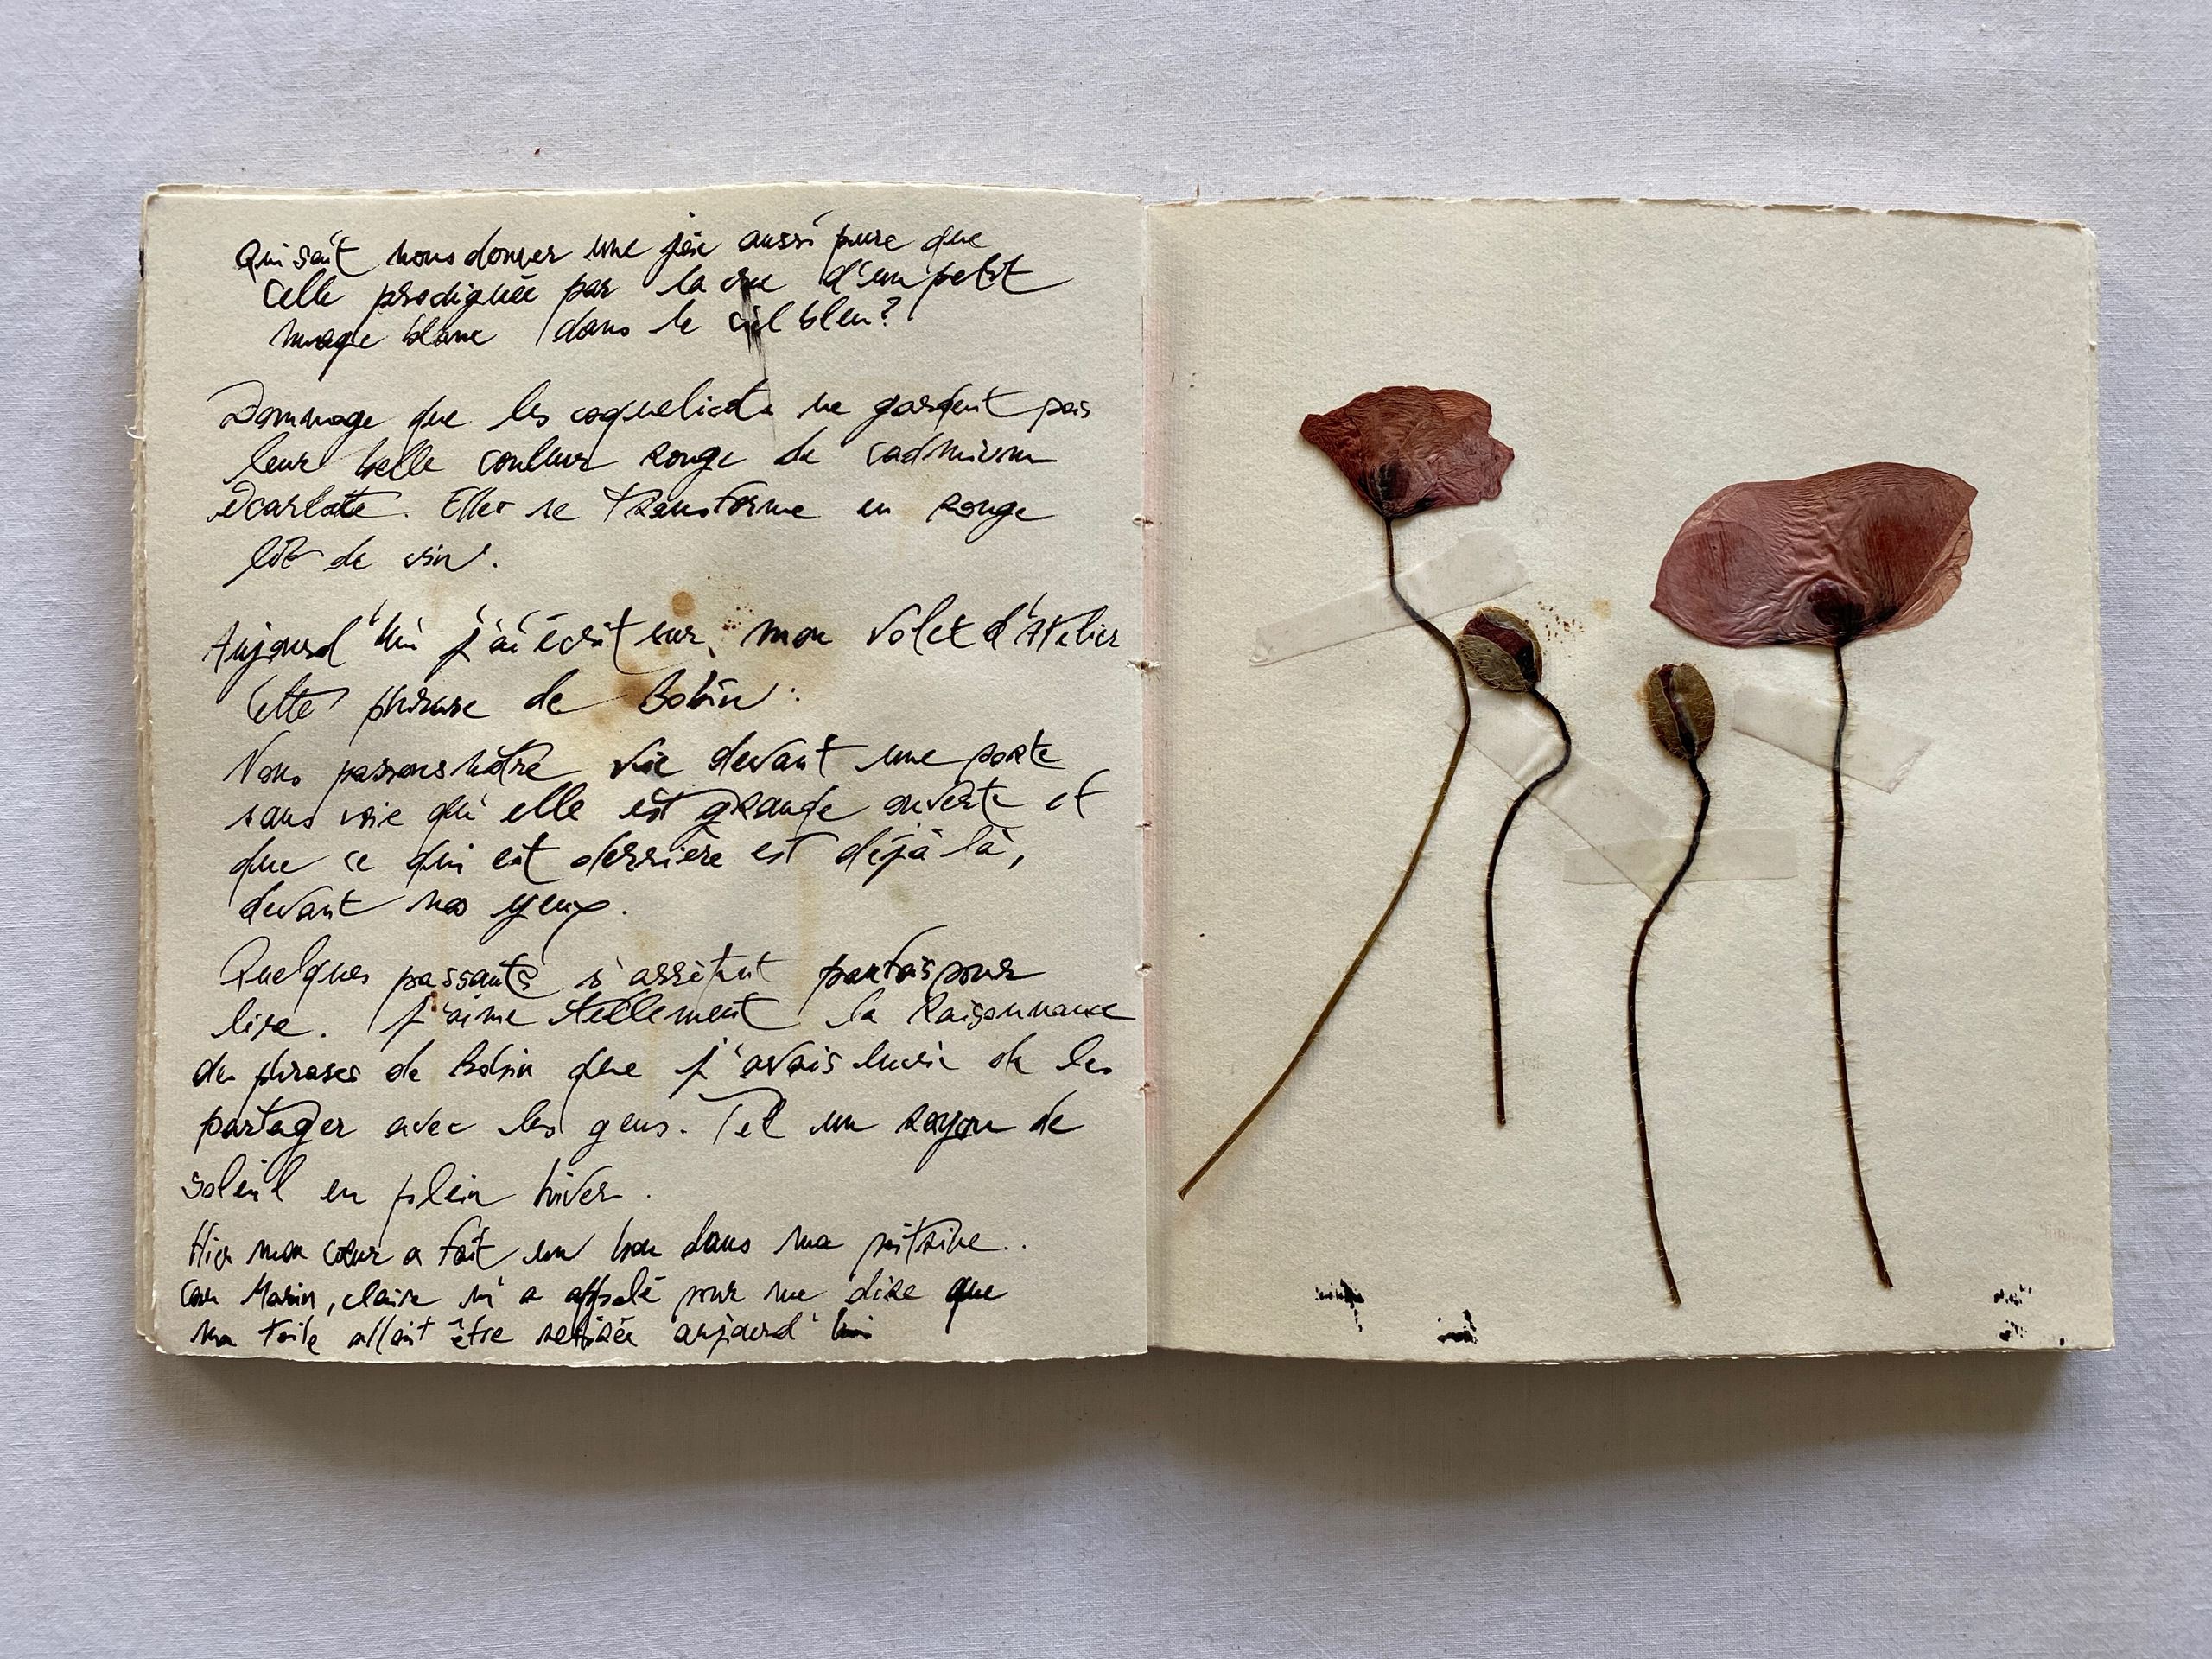 Qui sait nous donner une joie aussi pure que
celle prodiguée par la vue d'un petit
nuage blanc dans le ciel bleu?
Dommage que les coquelicots ne gardent pas
leur belle couleur rouge de cadmium
écarlate. Elles se transforme en rouge
lie de vin.
Aujourd'hui j'ai écrit sur mon volet d'Atelier
cette phrase de Bobin:
Nous passons notre vie devant une porte
sans voir qu'elle est grande ouverte et
que ce qui est derrière est déjà là,
devant nos yeux.
Quelques passants s'arrêtent parfois pour
lire. J'aime tellement la Raisonnance
des phrases de Bobin que j'avais envie de les
partager avec les gens. Tel un rayon de
soleil en plein hiver.
Hier mon cœur a fait un bon dans ma poitrine..
Car Marin, claire m'a appelé pour me dire que
ma toile allait être retirée aujourd'hui